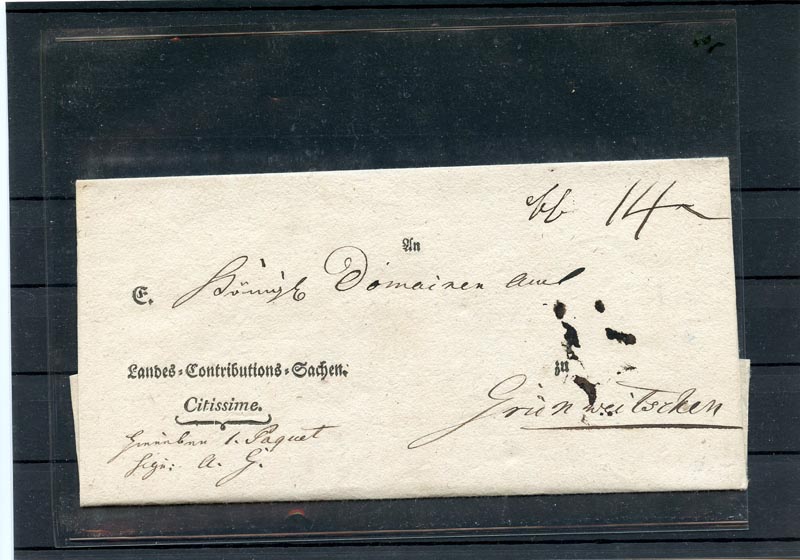 14
An
E. Königl Domainen Amt
Landes-Contributions-Sachen.
zu
Citissime.
Grünweitschen
hierüber 1. Paquet
sign: A. G.